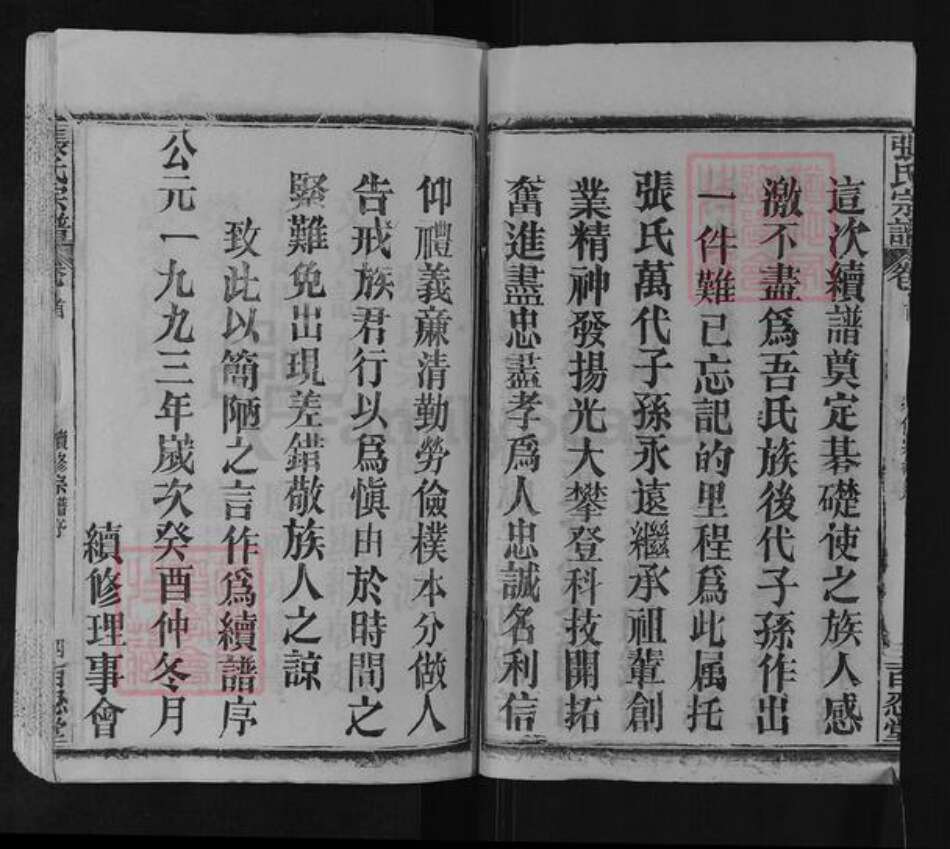 張氏宗譜
百忍堂
這次續譜奠定碁礎使之族人感
激不盡爲吾氏族後代子孫作出
一件難已忘記的里程爲此属托
張氏萬代子孫永遠繼承祖輩創
業精神發揚光大攀登科技開拓
奮進盡忠盡孝爲人忠誠名利信
仰禮義亷清勤勞儉樸本分做人
告戒族君行以爲愼由於時間之
緊難免出現差錯敬族人之諒
致此以簡陋之言作爲續譜序
公元一九九三年嵗次癸酉仲冬月
續修理事會
張氏宗譜
卷首
續修宗譜序
四
百忍堂